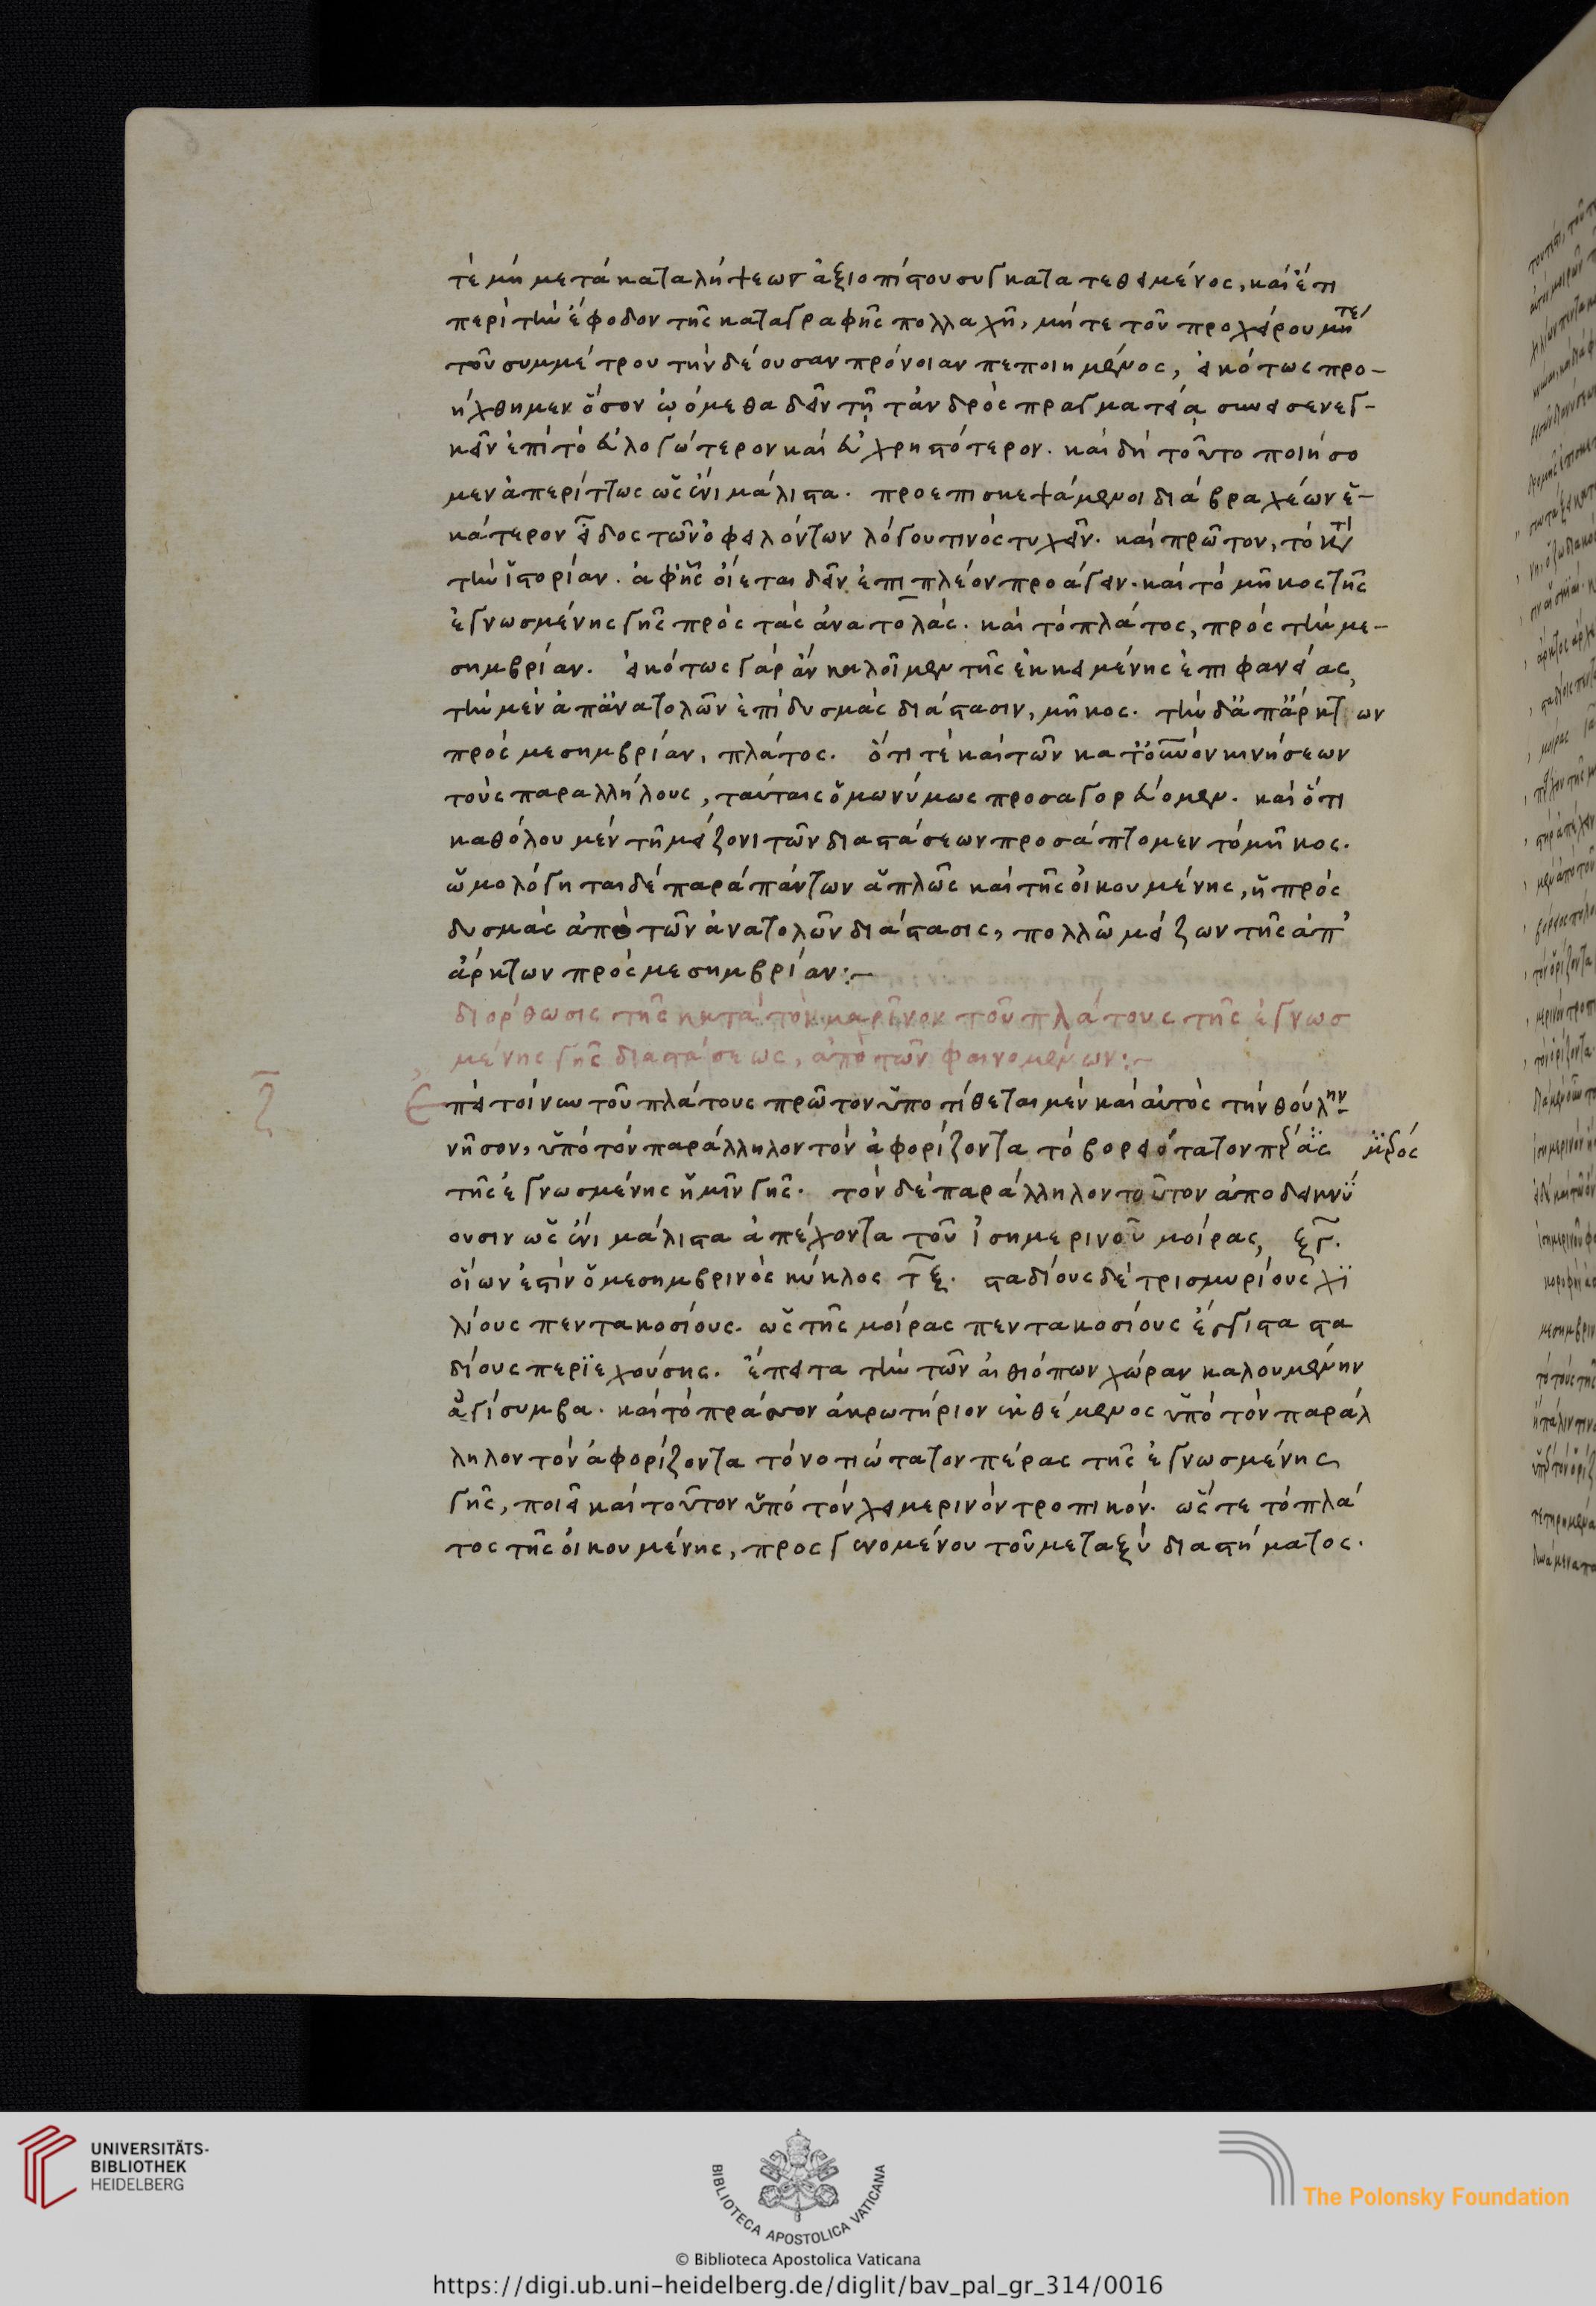 τὲ μὴ μετὰ καταλήψεως ἀξιοπίστου συγκατατεθειμένος, καὶ ἔτι
περὶ τὴν ἔφοδον τῆς καταγραφῆς πολλαχῆ, μήτε τοῦ προχείρου μήτε
τοῦ συμμέτρου τὴν δέουσαν πρόνοιαν πεποιημένος, εἰκότως προ-
ήχθημεν ὅσον ᾠόμεθα δεῖν τῇ τἀνδρὸς πραγματείᾳ συνεισενεγ-
κεῖν ἐπὶ τὸ εὐλογώτερον καὶ εὐχρηστότερον. καὶ δὴ τοῦτο ποιήσο
μεν ἀπερίττως ὡς ἔνι μάλιστα. προεπισκεψάμενοι διὰ βραχέων ἑ-
κάτερον εἶδος τῶν ὀφειλόντων λόγου τινὸς τυχεῖν. καὶ πρῶτον, τὸ κατὰ
τὴν ἱστορίαν. ἀφ' ἧς οἴεται δεῖν ἐπιπλέον προάγειν. καὶ τὸ μῆκος τῆς
ἐγνωσμένης γῆς πρὸς τὰς ἀνατολάς. καὶ τὸ πλάτος, πρὸς τὴν με-
σημβρίαν. εἰκότως γὰρ ἂν καλοῖμεν τῆς ἐκκειμένης ἐπιφανείας,
τὴν μὲν ἀπ' ἀνατολῶν ἐπὶ δυσμὰς διάστασιν, μῆκος. τὴν δ' ἀπ' ἄρκτων
πρὸς μεσημβρίαν, πλάτος. ὅτι τὲ καὶ τῶν κατ' οὐνὸν κινήσεων
τοὺς παραλλήλους, ταύταις ὁμωνύμως προσαγορεύομεν. καὶ ὅτι
καθόλου μὲν τῇ μείζονι τῶν διαστάσεων προσάπτομεν τὸ μῆκος.
ὡμολόγηται δὲ παρὰ πάντων ἁπλῶς καὶ τῆς οἰκουμένης, ἡ πρὸς
δυσμὰς ἀπὸ τῶν ἀνατολῶν διάστασις, πολλῶ μείζων τῆς ἀπ'
ἄρκτων πρὸς μεσημβρίαν:-
διόρθωσις τῆς κατὰ τὸν μαρῖνον τοῦ πλάτους τῆς ἐγνωσ
μένης γῆς διαστάσεως, ἀπὸ τῶν φαινομένων:-
ζ Ἐπεὶ τοίνυν τοῦ πλάτους πρῶτον ὑποτίθεται μὲν καὶ αὐτὸς τὴν θούλην
νῆσον, ὑπὸ τὸν παράλληλον τὸν ἀφορίζοντα τὸ βορειότατον πέρας μέρος
τῆς ἐγνωσμένης ἡμῖν γῆς. τὸν δὲ παράλληλον τοῦτον ἀποδεικνύ
ουσιν ὡς ἔνι μάλιστα ἀπέχοντα τοῦ ἰσημερινοῦ μοίρας, ξγ.
οἵων ἐστὶν ὁ μεσημβρινὸς κύκλος τξ. σταδίους δὲ τρισμυρίους χι
λίους πεντακοσίους. ὡς τῆς μοίρας πεντακοσίους ἔγγιστα στα
δίους περιεχούσης. ἔπειτα τὴν τῶν αἰθιόπων χώραν καλουμένην
ἀγίσυμβα. καὶ τὸ πράσσον ἀκρωτήριον ἐκθέμενος ὑπὸ τὸν παράλ
ληλον τὸν ἀφορίζοντα τὸ νοτιώτατον πέρας τῆς ἐγνωσμένης
γῆς, ποιεῖ καὶ τοῦτον ὑπὸ τὸν χειμερινὸν τροπικόν. ὥς τε τὸ πλά
τος τῆς οἰκουμένης, προσγενομένου τοῦ μεταξὺ διαστήματος.
UNIVERSITÄTS-
BIBLIOTHEK
HEIDELBERG
BIBLIOTECA APOSTOLICA VATICANA
The Polonsky Foundation
© Biblioteca Apostolica Vaticana
https://digi.ub.uni-heidelberg.de/diglit/bav_pal_gr_314/0016